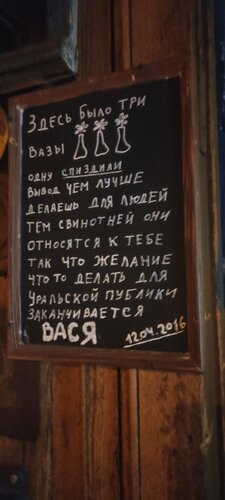 Здесь было три
вазы
одну спиздили
вывод чем лучше
делаешь для людей
тем свинотней они
относятся к тебе
так что желание
что то делать для
Уральской публики
заканчивается
ВАСЯ 12.04.2016